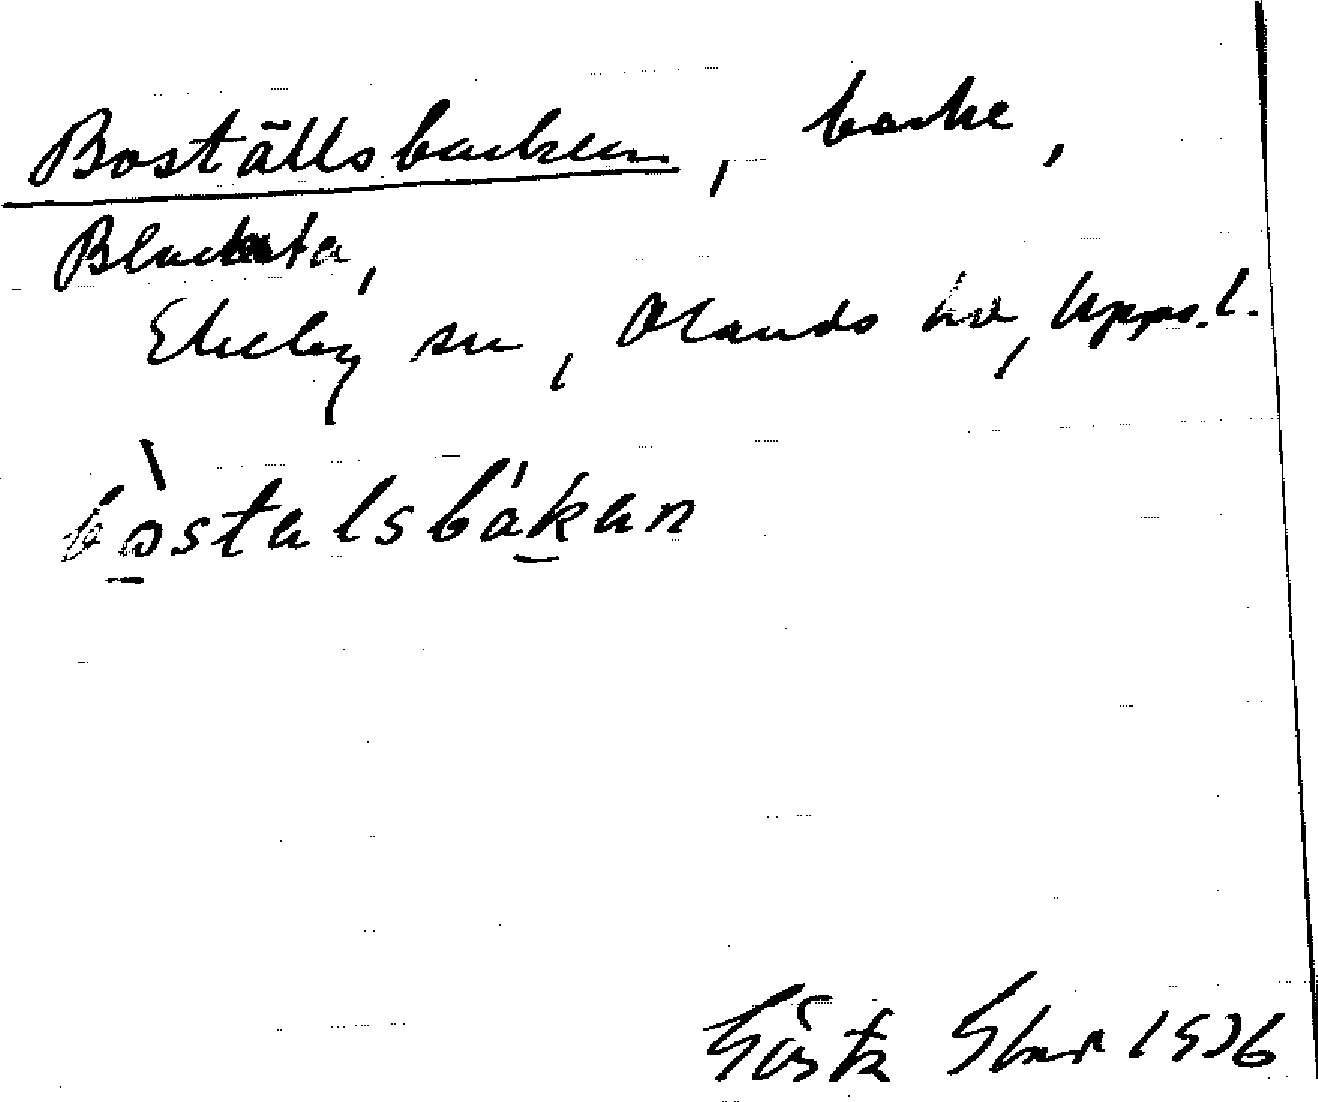 Boställsbacken, backe,
Blacksta,
Ekeby sn, Olands hd, Upps. l.
bòstalsbákan
Gösta 1936